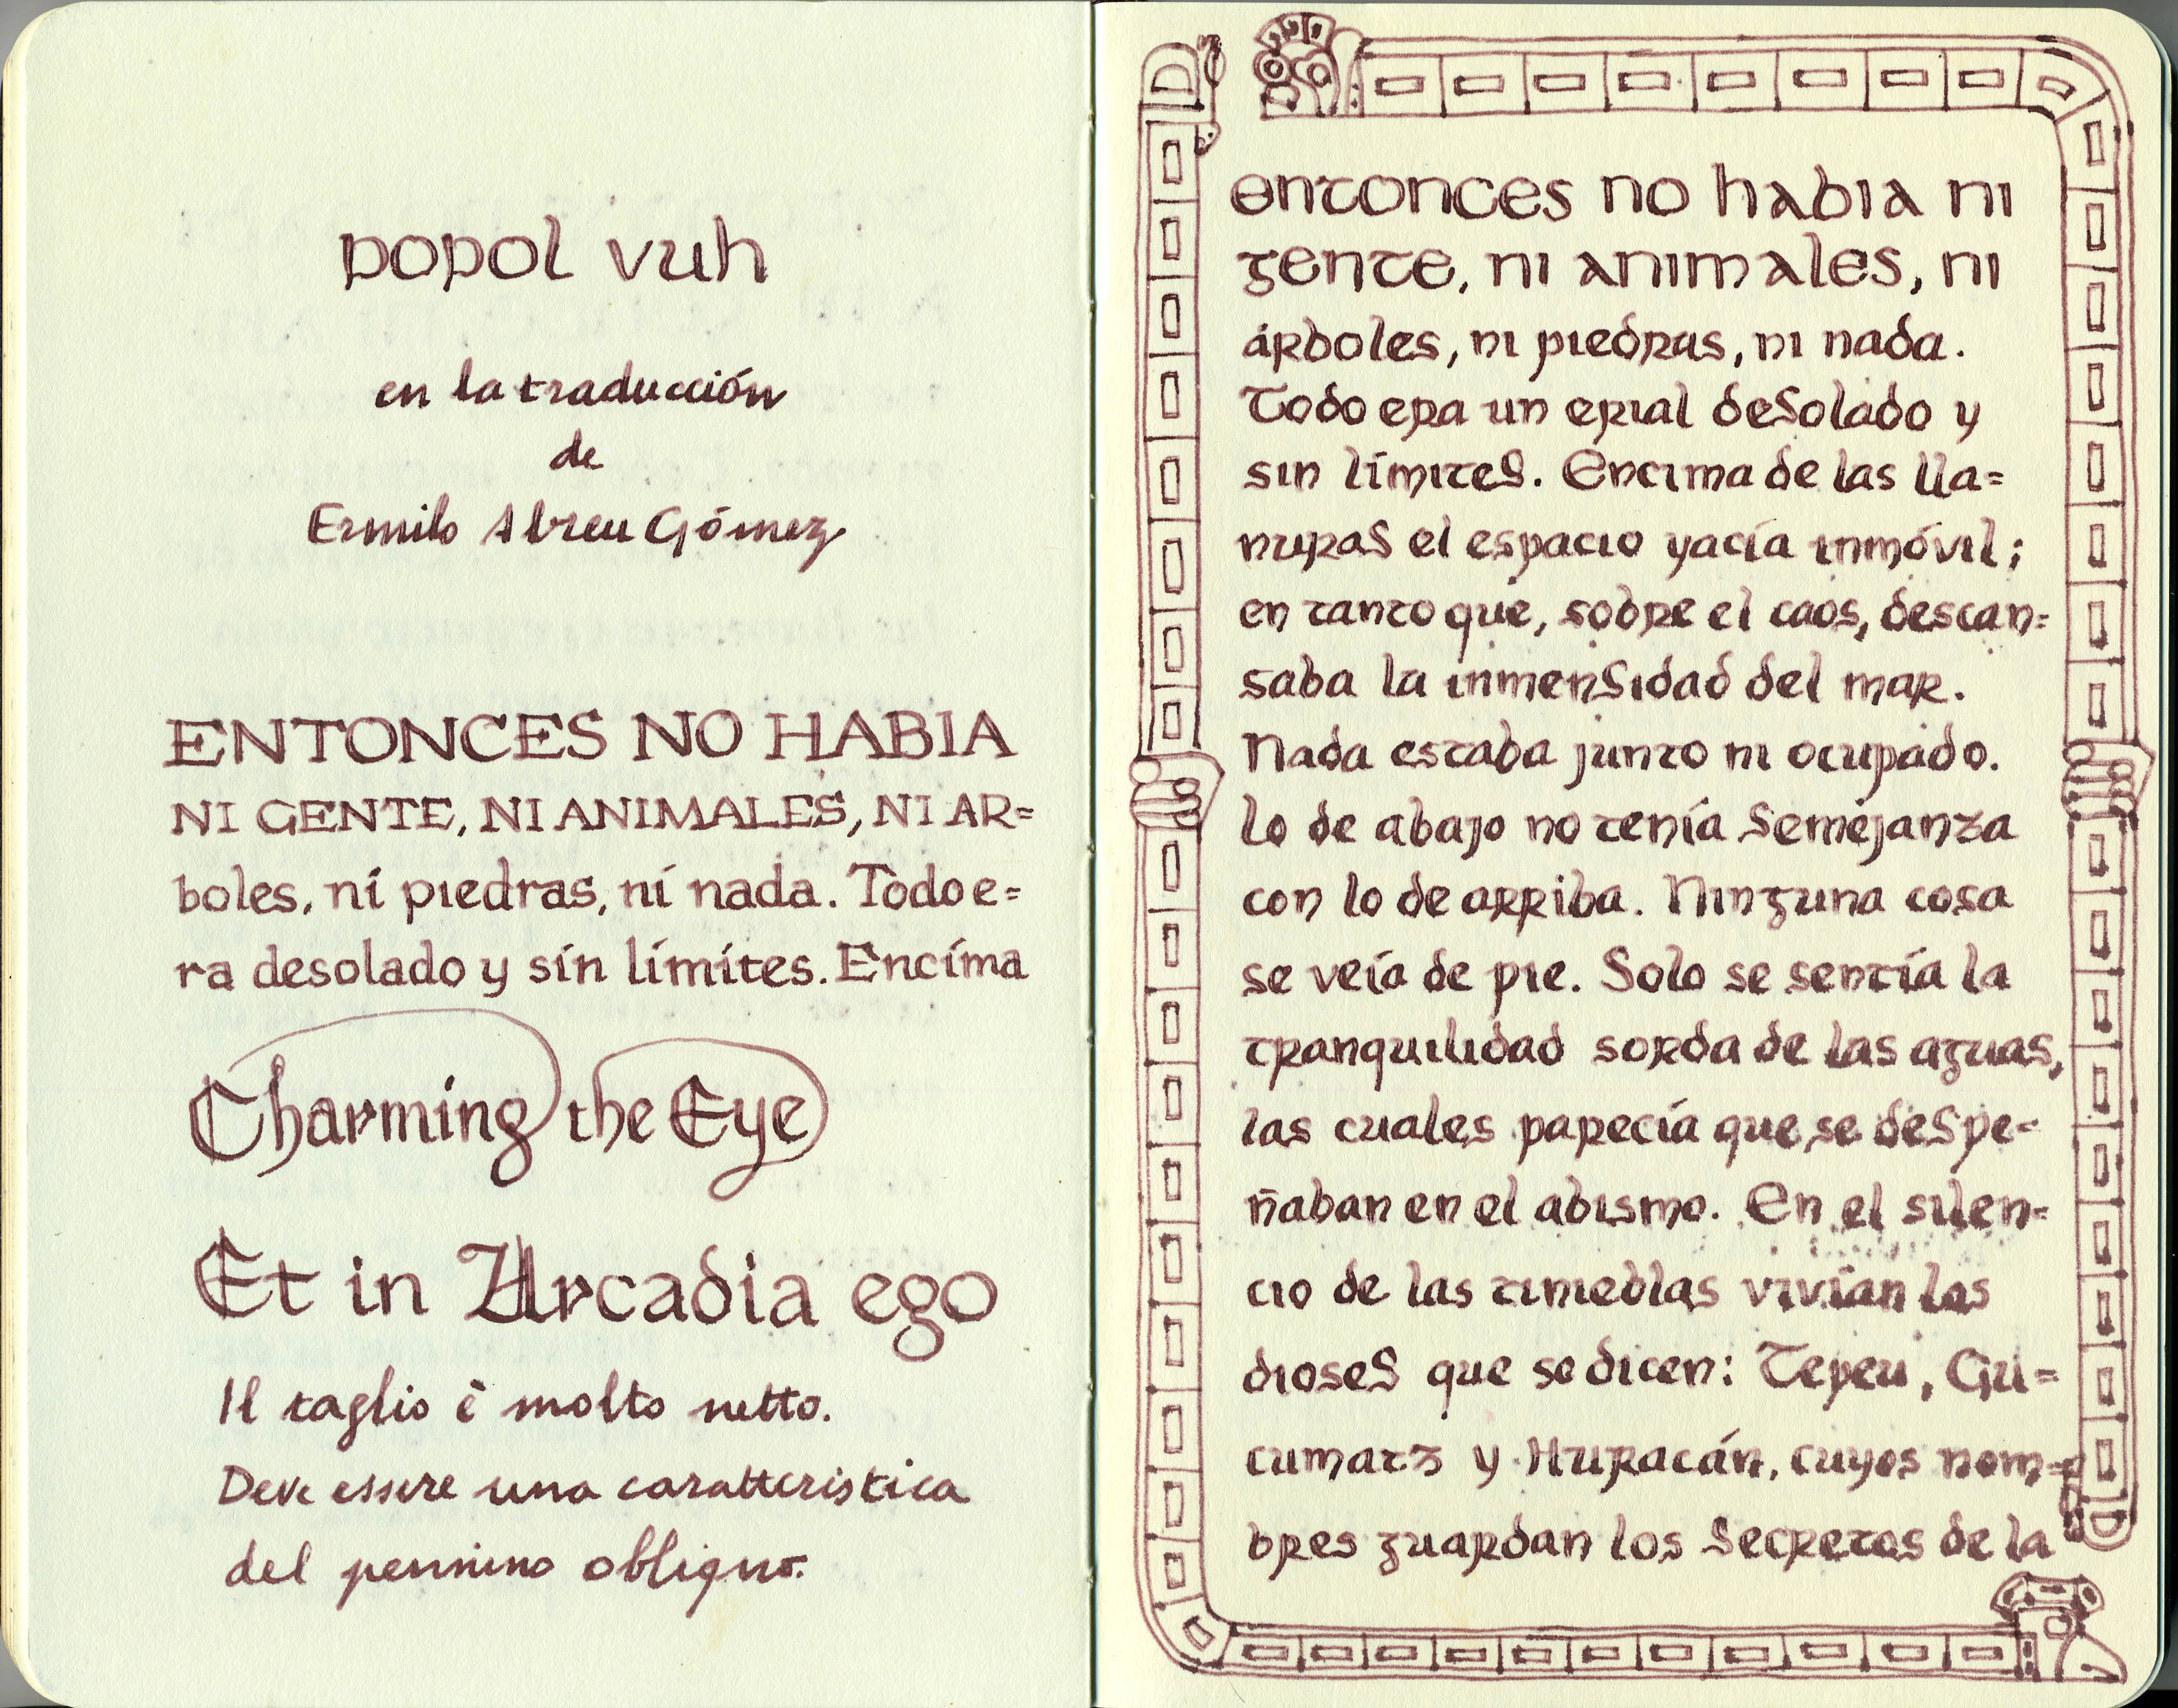 popol vuh
en la traducción
de
Ermilo Abreu Gómez
ENTONCES NO HABIA
NI GENTE, NI ANIMALES, NI AR=
boles, ni piedras, ni nada. Todo e=
ra desolado y sin límites. Encima
Charming the Eye
Et in Arcadia ego
Il taglio è molto netto.
Deve essere una caratteristica
del pennino obliquo.
entonces no habia ni
gente, ni animales, ni
árboles, ni piedras, ni nada.
Todo era un erial desolado y
sin límites. Encima de las lla=
nuras el espacio yacía inmóvil;
en tanto que, sobre el caos, descan=
saba la inmensidad del mar.
Nada estaba junto ni ocupado.
lo de abajo no tenía semejanza
con lo de arriba. Ninguna cosa
se veía de pie. Solo se sentía la
tranquilidad sorda de las aguas,
las cuales parecía que se despe=
ñaban en el abismo. En el silen=
cio de las tinieblas vivían los
dioses que se dicen: Tepeu, Gu=
cumatz y Huracán, cuyos nom=
bres guardan los secretos de la